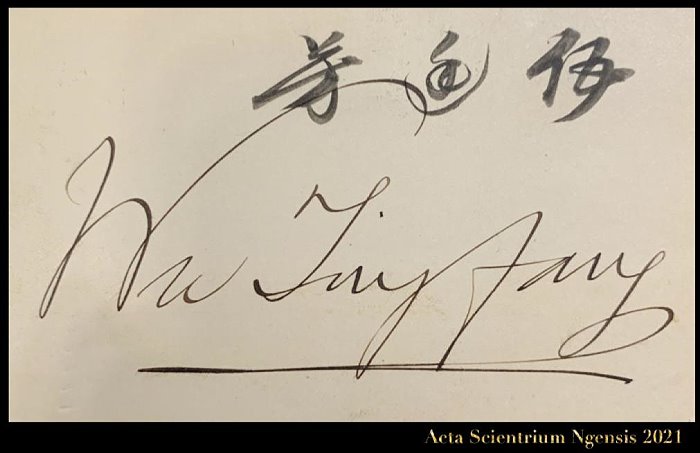 伍廷芳
Wu Ting fang
Acta Scientrium Ngensis 2021